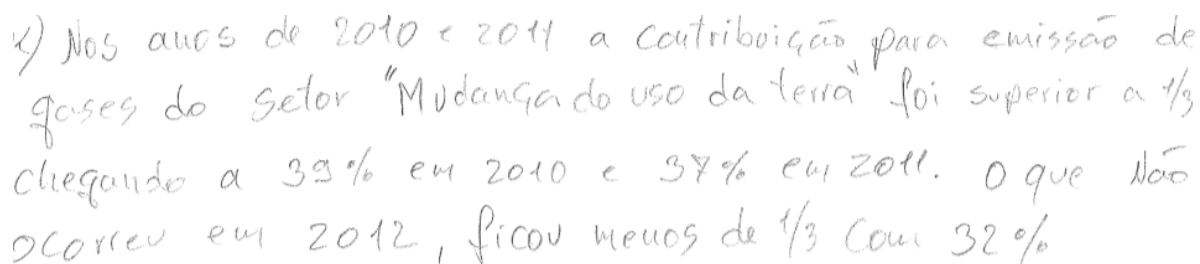 1) Nos anos de 2010 e 2011 a contribuição para emissão de
gases do setor "Mudança do uso da terra" foi superior a 1/3
chegando a 39% em 2010 e 37% em 2011. O que Não
ocorreu em 2012, ficou menos de 1/3 com 32%